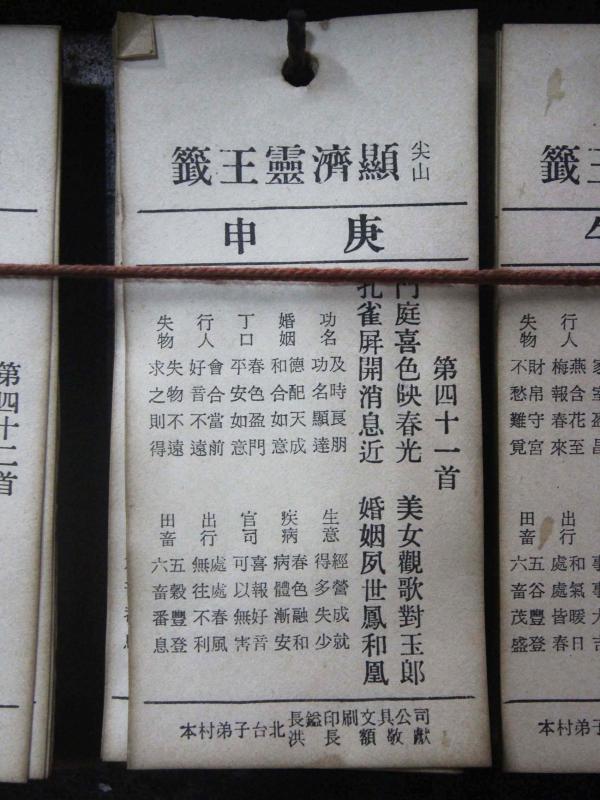 尖山
顯濟靈王籤
庚申
第四十一首
門庭喜色映春光 美女觀歌對玉郎
孔雀屏開消息近 婚姻夙世鳳和凰
功名
及時良朋
功名顯達
婚姻
德配天成
和合如意
丁口
春色盈門
平安如意
行人
會合當前
好音不遠
失物
失物不遠
求之則得
生意
經營成就
得多失少
疾病
春色融和
病體漸安
官司
喜報好音
可以無害
出行
處處春風
無往不利
田畜
五穀豐登
六畜番息
本村弟子台北
長鎰印刷文具公司
洪長額敬獻
第四十二首
王籤
行人
燕含花至
梅報春來
失物
財帛守宮
不愁難覓
出行
和氣暖日
處處皆春
田畜
五谷豐登
六畜茂盛
本村弟子